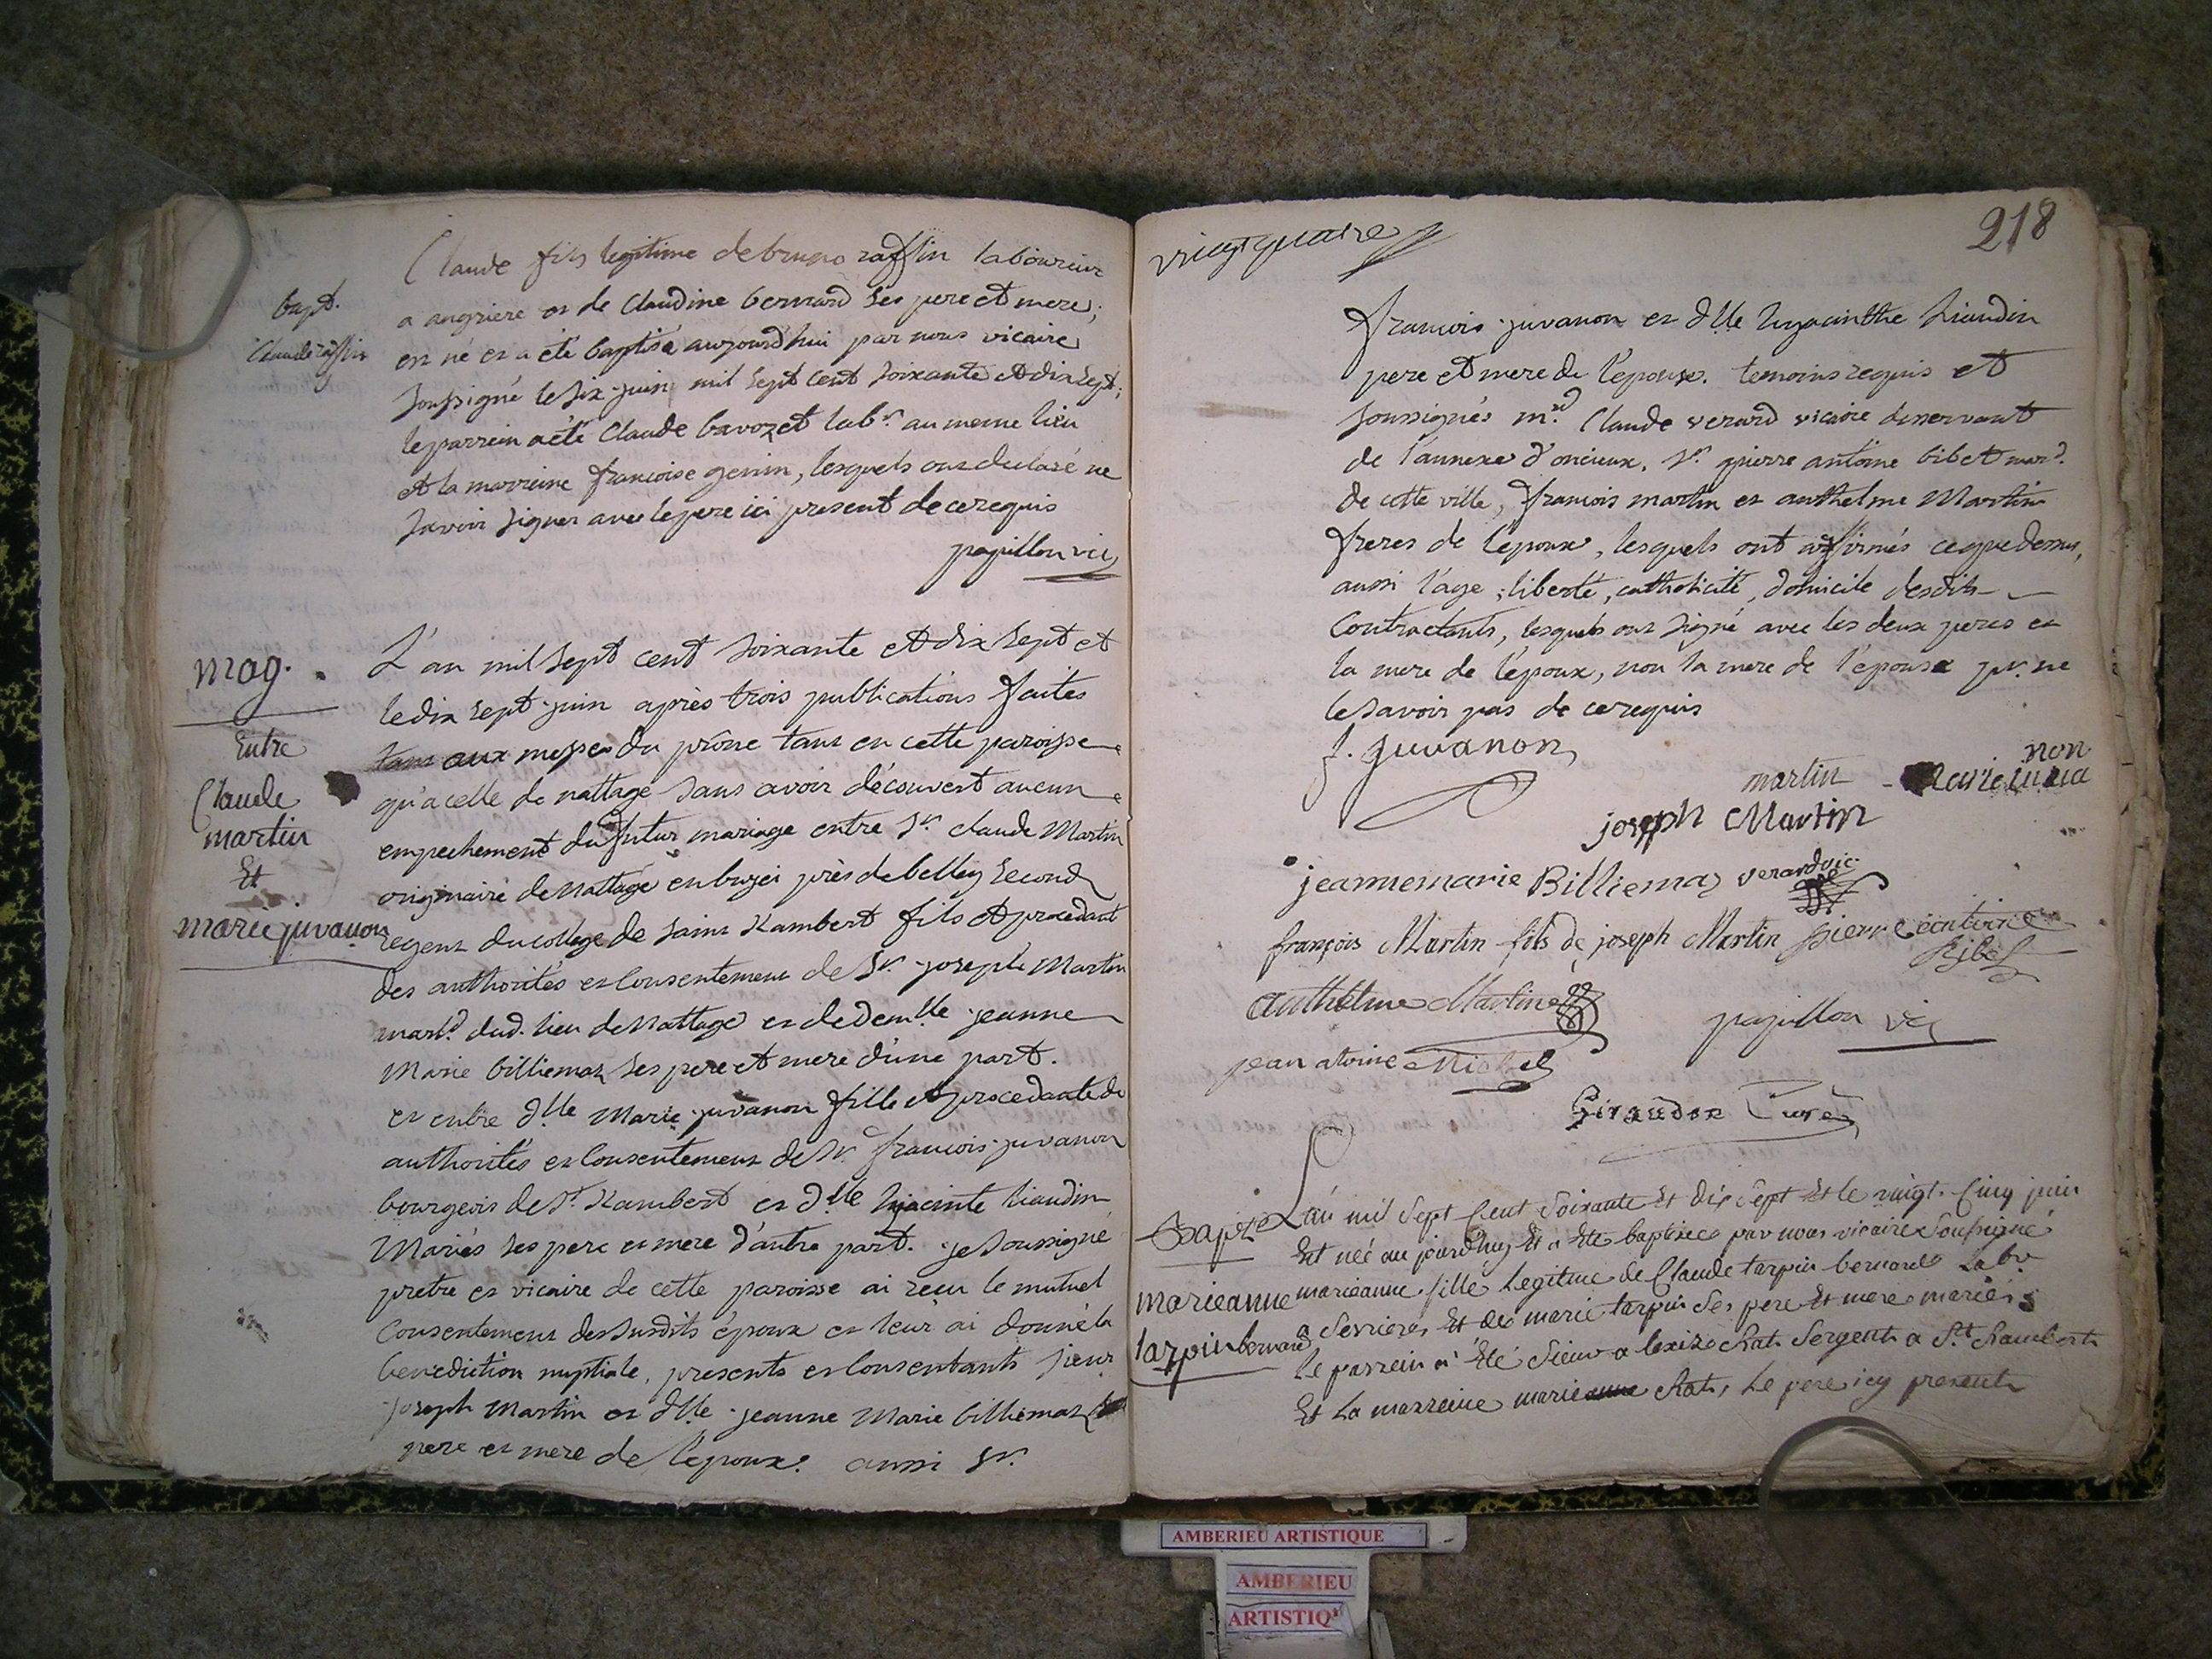 bapt.
Claude raffin
Claude fils legitime de bruno raffin laboureur
a angriere et de Claudine bernard ses pere et mere;
est né et a été baptisé aujourd'hui par nous vicaire
soussigné le six juin mil sept cent soixante et dix sept;
le parrein a été Claude bavozet labr. au meme lieu
et la marreine francoise genin, lesquels ont declaré ne
savoir signer avec le pere ici present de ce requis
papillon vic
mag.
Entre
Claude
martin
Et
marie juvanon
L'an mil sept cent soixante et dix sept et
le dix sept juin après trois publications faites
aux messes du prône tant en cette paroisse
qu'a celle de nattage sans avoir découvert aucun
empechement du futur mariage entre Sr. claude Martin
originaire de Nattage en bugei près de belley second
regent du college de saint Rambert fils et procedant
des authorités et consentement de Sr. joseph Martin
march.d dud. lieu de Nattage et de demlle jeanne
Marie billiemaz ses pere et mere d'une part.
et entre dlle Marie juvanon fille et procedante de
authorités et consentement de Sr. francois juvanon
bourgeois de St Rambert et dlle hyacinte liaudin
Mariés ses pere et mere d'autre part. je soussigné
pretre et vicaire de cette paroisse ai recu le mutuel
consentement des susdits époux et leur ai donné la
benediction nuptiale, presents et consentants sieur
joseph Martin et dlle jeanne Marie billiemaz
pere et mere de l'epoux. aussi Sr.
vingt quatre
218
francois juvanon et dlle hyacinthe liaudin
pere et mere de l'epouse. temoins requis et
soussignés mre Claude verard vicaire desservant
de l'annexe d'oncieux, Sr. pierre antoine bibet mard.
de cette ville, francois martin et anthelme Martin
freres de l'epoux, lesquels ont affirmés ce que dessus,
aussi l'age, liberté, catholicité, domicile desdits
contractants, lesquels ont signé avec les deux peres et
la mere de l'époux, non la mere de l'épouse pr. ne
le savoir pas de ce requis
f. juvanon
martin
non
joseph Martin
jeannemarie Billiemaz verard vic.
françois Martin fils de joseph Martin pierre antoine
Bibet
anthelme Martin
papillon vic
jean atoine Michel
Giraudon Curé
Bapt
marieanne
tarpin bernard
L'an mil sept cent soixante Et dix sept Et le vingt. cinq juin
Est née au jourd'huy Et a Eté baptisée par nous vicaire soussigné
marieanne fille Legitime de Claude tarpin bernard Labr
a sevrieres Et de marie tarpin ses pere Et mere mariés
le parrein a Eté sieur alexize chat sergent a St. Rambert
Et La marreine marie chat, Le pere icy present
AMBERIEU ARTISTIQUE
AMBERIEU
ARTISTIQ'